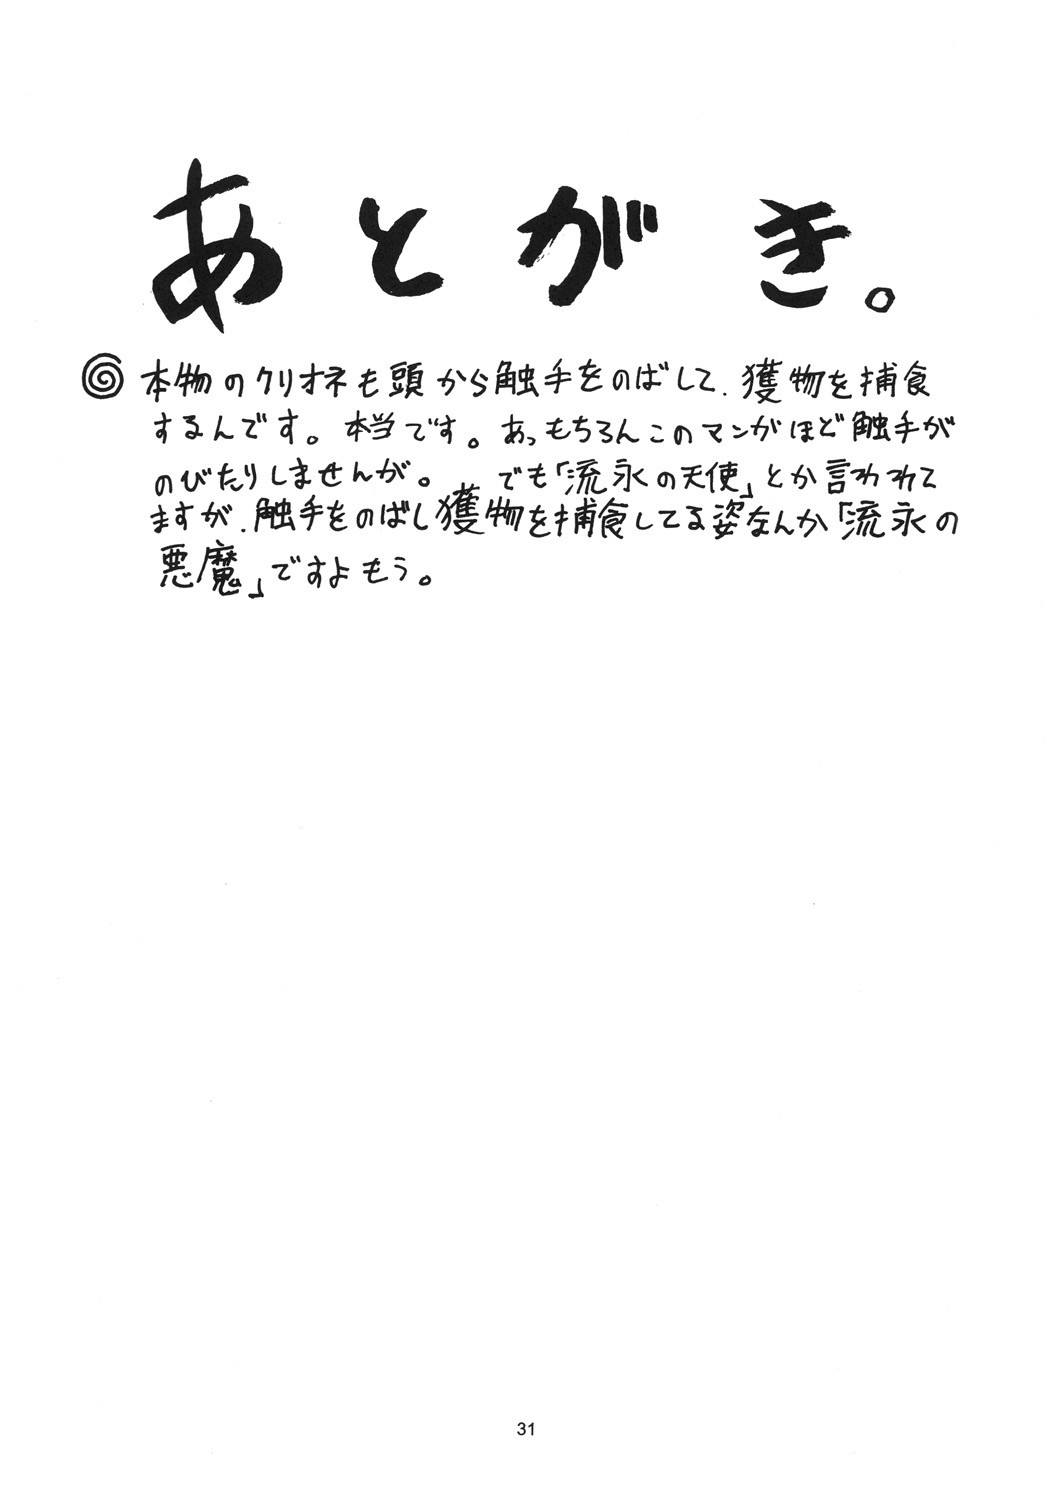 あとがき。
本物のクリオネも頭から触手をのばして、獲物を捕食
するんです。本当です。あっもちろんこのマンガほど触手が
のびたりしませんが。 でも「流氷の天使」とか言われて
ますが、触手をのばし獲物を捕食してる姿なんか「流氷の
悪魔」ですよもう。
31